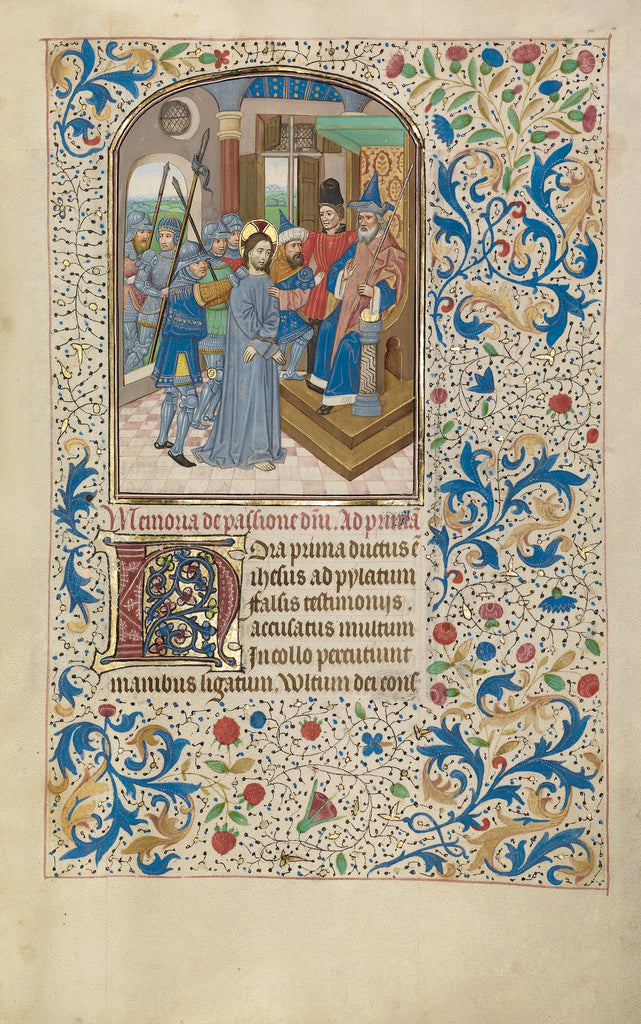 Memoria de passione dñi. Ad primã
Hora prima ductus ẽ
ihesus ad pylatum
falsis testimoniis.
accusatus multum
In collo percutiunt
manibus ligatum. Vltum dei cons